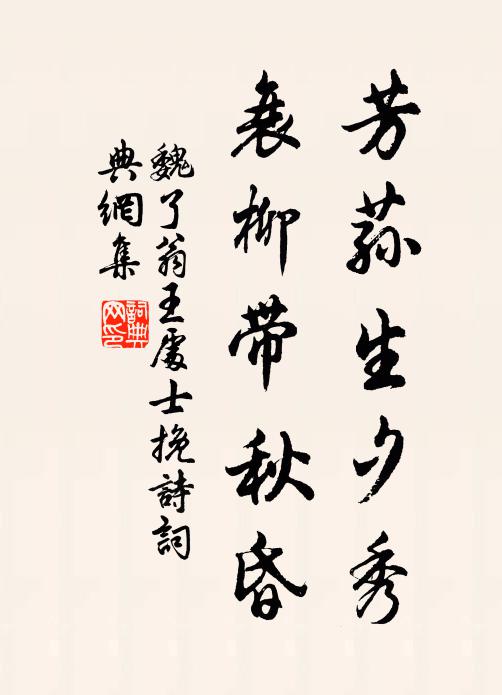 芳荪生夕秀
衰柳带秋昏
魏了翁王處士挽詩詞
典網集
詞典
网印